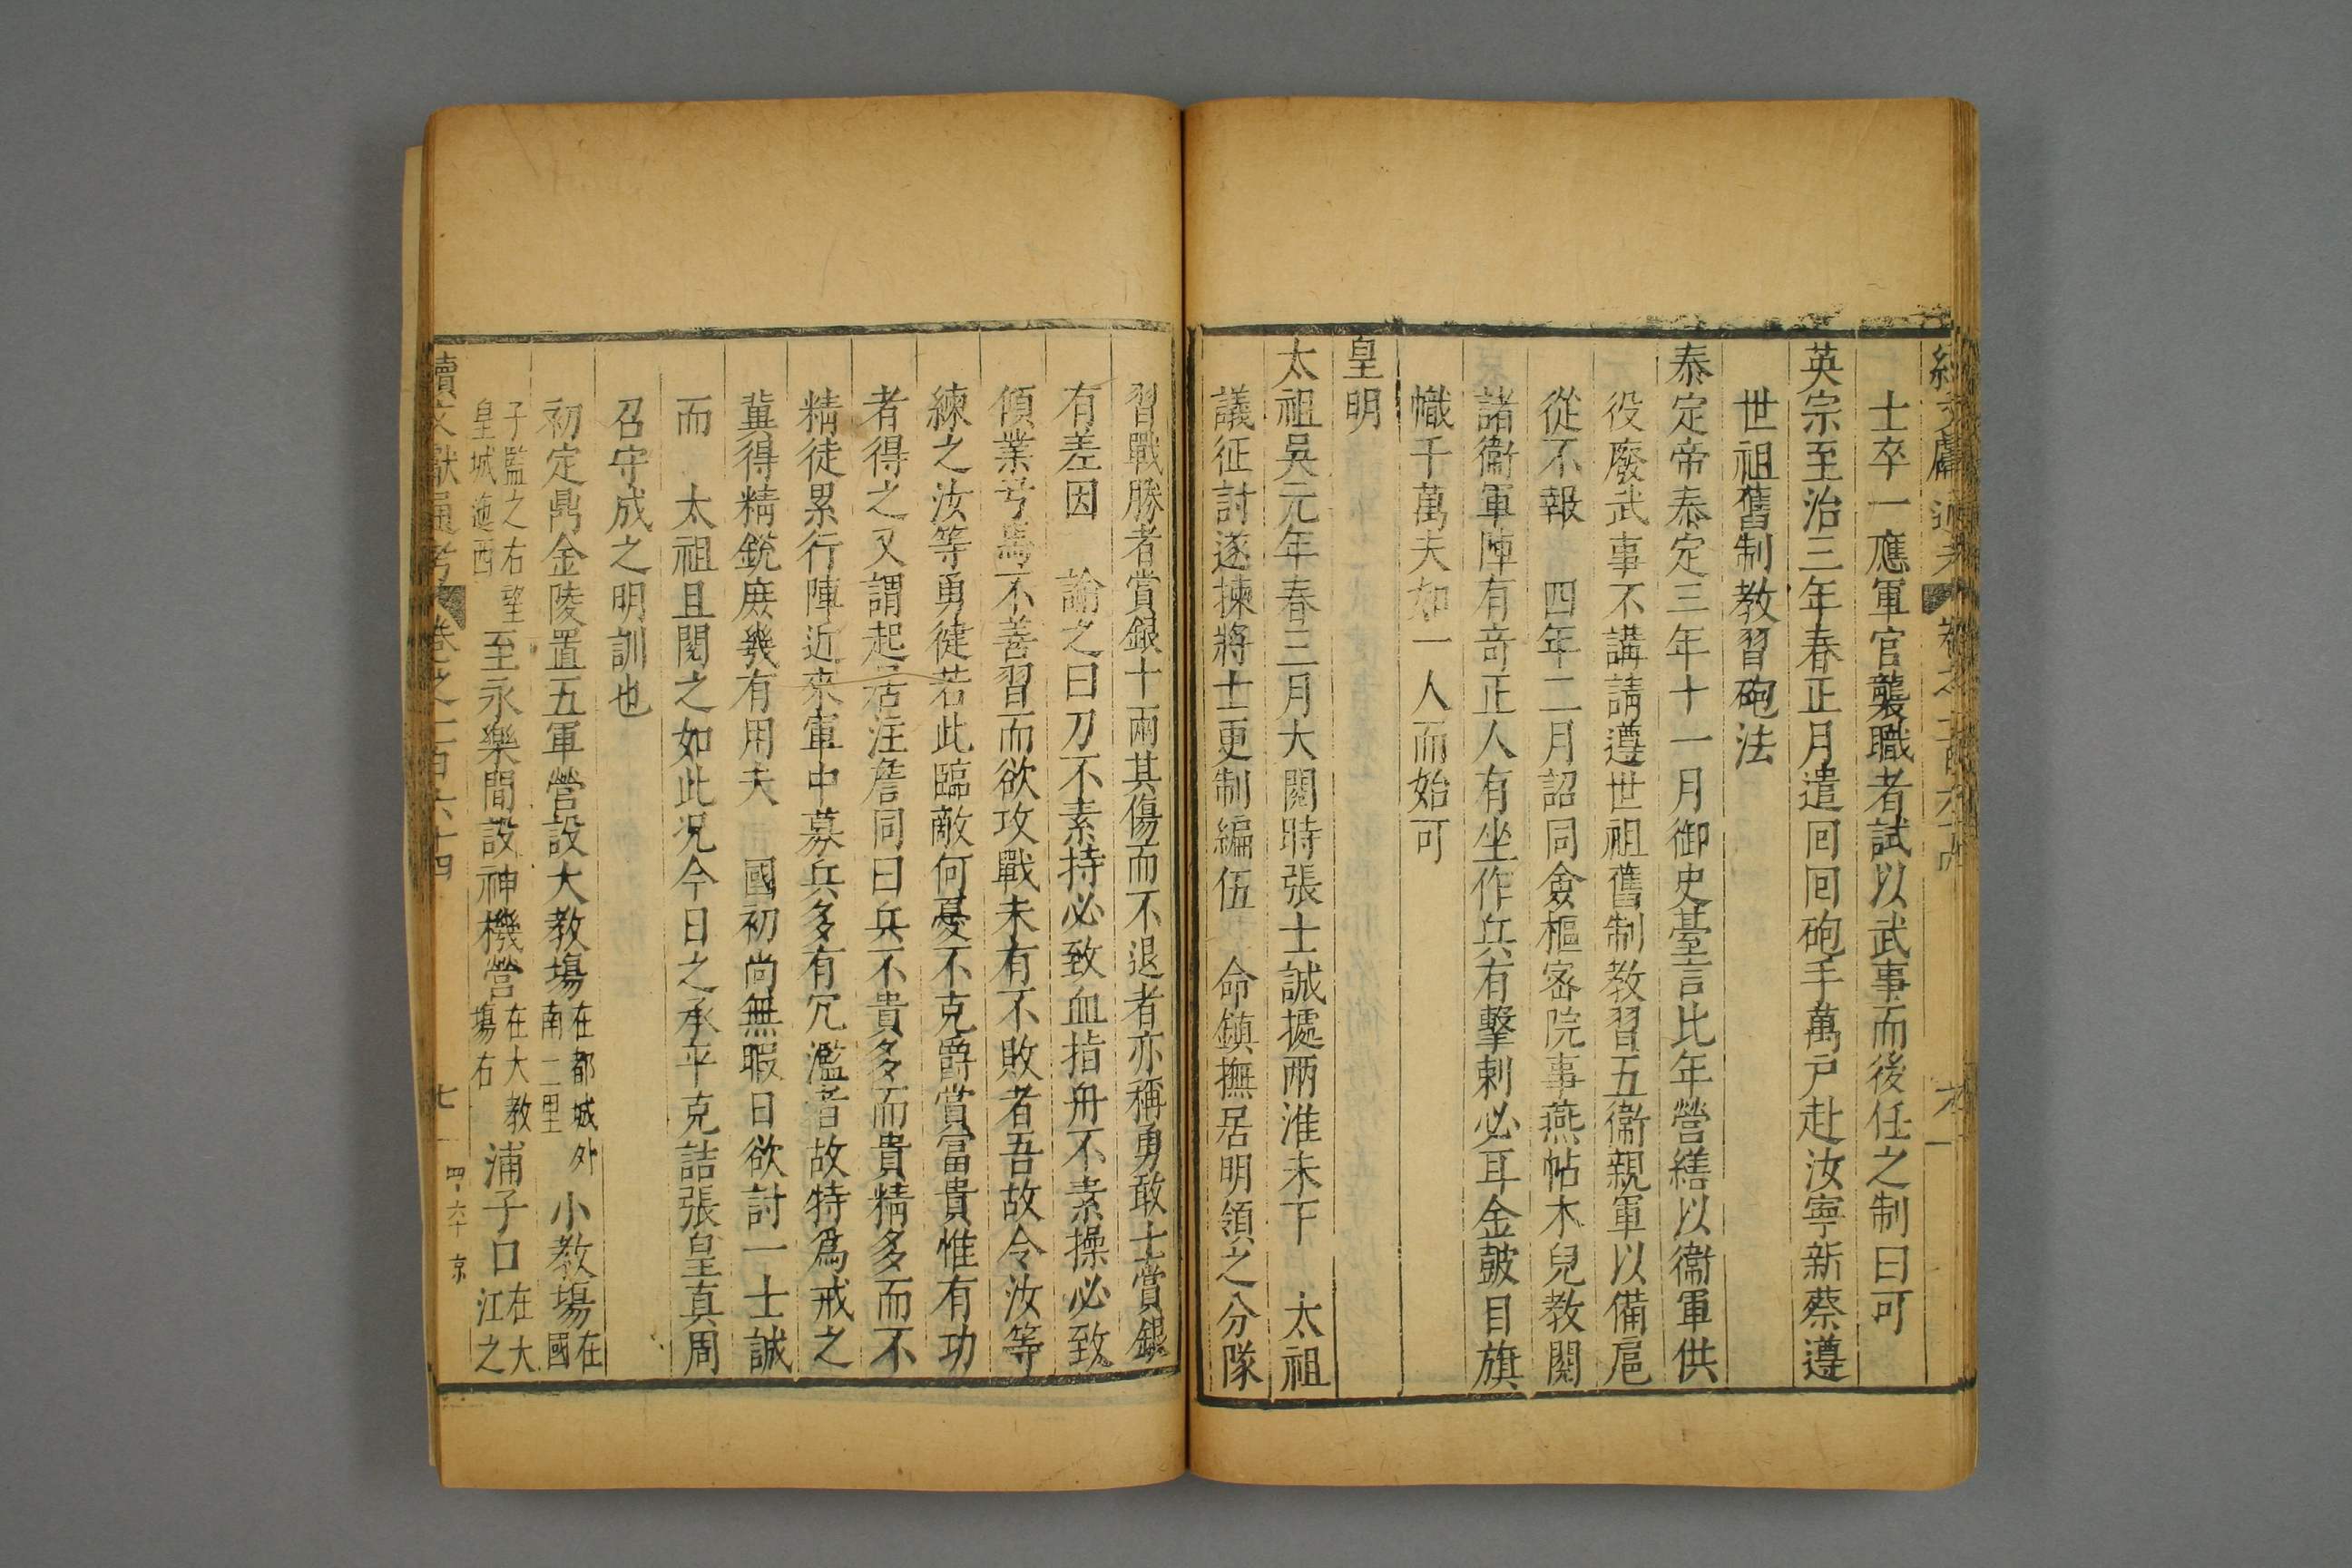 續文獻通考 卷之一百六十四 六
士卒一應軍官襲職者試以武事而後任之制曰可
英宗至治三年春正月遣回回砲手萬戸赴汝寧新蔡遵
世祖舊制教習砲法
泰定帝泰定三年十一月御史臺言比年營繕以衞軍供
役廢武事不講請遵世祖舊制教習五衞親軍以備扈
從不報 四年二月詔同僉樞密院事燕帖木兒教閱
諸衞軍陣有竒正人有坐作兵有擊剌必耳金皷目旗
幟千萬夫如一人而始可
皇明
太祖吳元年春三月大閱時張士誠據兩淮未下 太祖
議征討遂揀將士更制編伍 命鎮撫居明領之分隊
習戰勝者賞銀十兩其傷而不退者亦稱勇敢士賞銀
有差因 諭之曰刀不素持必致血指舟不素操必致
傾業弓馬不善習而欲攻戰未有不敗者吾故令汝等
練之汝等勇健若此臨敵何憂不克爵賞富貴惟有功
者得之又謂起居注詹同曰兵不貴多而貴精多而不
精徒累行陣近來軍中募兵多有冗濫者故特爲戒之
冀得精銳庶幾有用夫 國初尚無暇日欲討一士誠
而 太祖且閱之如此况今日之承平克詰張皇真周
召守成之明訓也
初定鼎金陵置五軍營設大教場在都城外南二里小教場在國
子監之右望皇城迤西至永樂間設神機營在大教場右浦子口在大江之
續文獻通考 卷之一百六十四 七 四六十 京